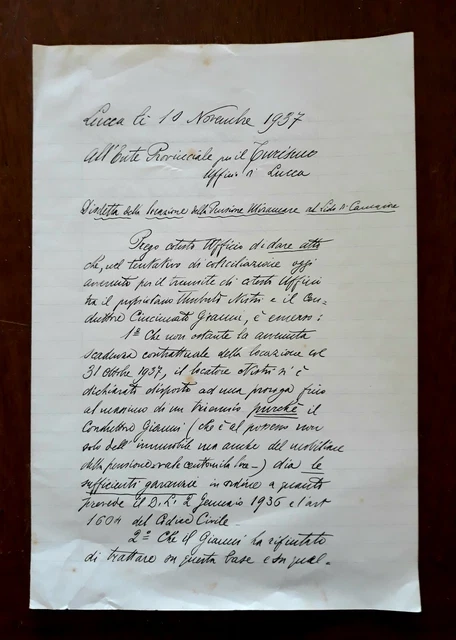 Lucca li 10 Novembre 1937
All'Ente Provinciale per il Turismo
Ufficio di Lucca
Disdetta della locazione della Pensione Miramare al Lido di Camaiore
Prego codesto Ufficio di dare atto
che, nel tentativo di conciliazione oggi
avvenuto per il tramite di codesto Ufficio
tra il proprietario Umberto Nistri e il con-
duttore Cincinnato Gianni, è emerso:
1º Che non ostante la avvenuta
scadenza contrattuale della locazione col
31 ottobre 1937, il locatore Nistri si è
dichiarato disposto ad una proroga fino
al massimo di un biennio purchè il
Conduttore Gianni (che è al possesso non
solo dell'immobile ma anche del mobiliare
della pensione vale centomila lire -) dia le
sufficienti garanzie in ordine a quanto
prevede il D.L. 2 Gennaio 1936 e l'art
1604 del Codice Civile -
2º Che il Gianni ha rifiutato
di trattare su questa base e su qual-